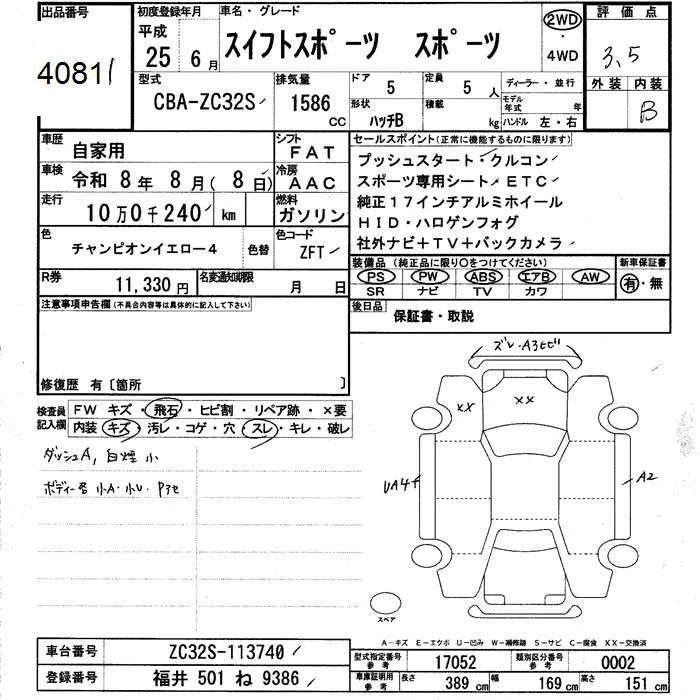 出品番号
40811
初度登録年月
平成
25年 6月
車名・グレード
スイフトスポーツ スポーツ
2WD
・
4WD
評価点
3.5
外装 内装
B
型式
CBA-ZC32S
排気量
1586
CC
ドア
5
定員
5人
形状
ハッチB
積載
kg
ディーラー・並行
モデル年式 年
ハンドル 左・右
車歴
自家用
シフト
FAT
車検
令和 8年 8月( 8日)
冷房
AAC
走行
10万0千240 km
燃料
ガソリン
色
チャンピオンイエロー4
色替
色コード
ZFT
R券
11,330円
名変通知期限
月 日
セールスポイント(正常に機能するものに限ります)
プッシュスタート・クルコン
スポーツ専用シート・ETC
純正17インチアルミホイール
HID・ハロゲンフォグ
社外ナビ+TV+バックカメラ
装備品(純正品に限り○をつけてください)
新車保証書
PS PW ABS エアB AW
SR ナビ TV カワ
有・無
後日品
保証書・取説
注意事項申告欄(不具合内容等は具体的に記入して下さい)
修復歴 有〔箇所 〕
検査員記入欄
FW キズ・飛石・ヒビ割・リペア跡・×要
内装 キズ・汚レ・コゲ・穴・スレ・キレ・破レ
ダッシュA, 白煙 小
ボディー各 小A・小U・
ズレ・A3ヒビ
XX
XX
UA4
A2
スペア
A-キズ E-エクボ U-凹み W-補修跡 S-サビ C-腐食 XX-交換済
車台番号
ZC32S-113740
登録番号
福井 501 ね 9386
型式指定番号
参考
17052
類別区分番号
参考
0002
車庫証明用
参考
長さ 389 cm
幅 169 cm
高さ 151 cm